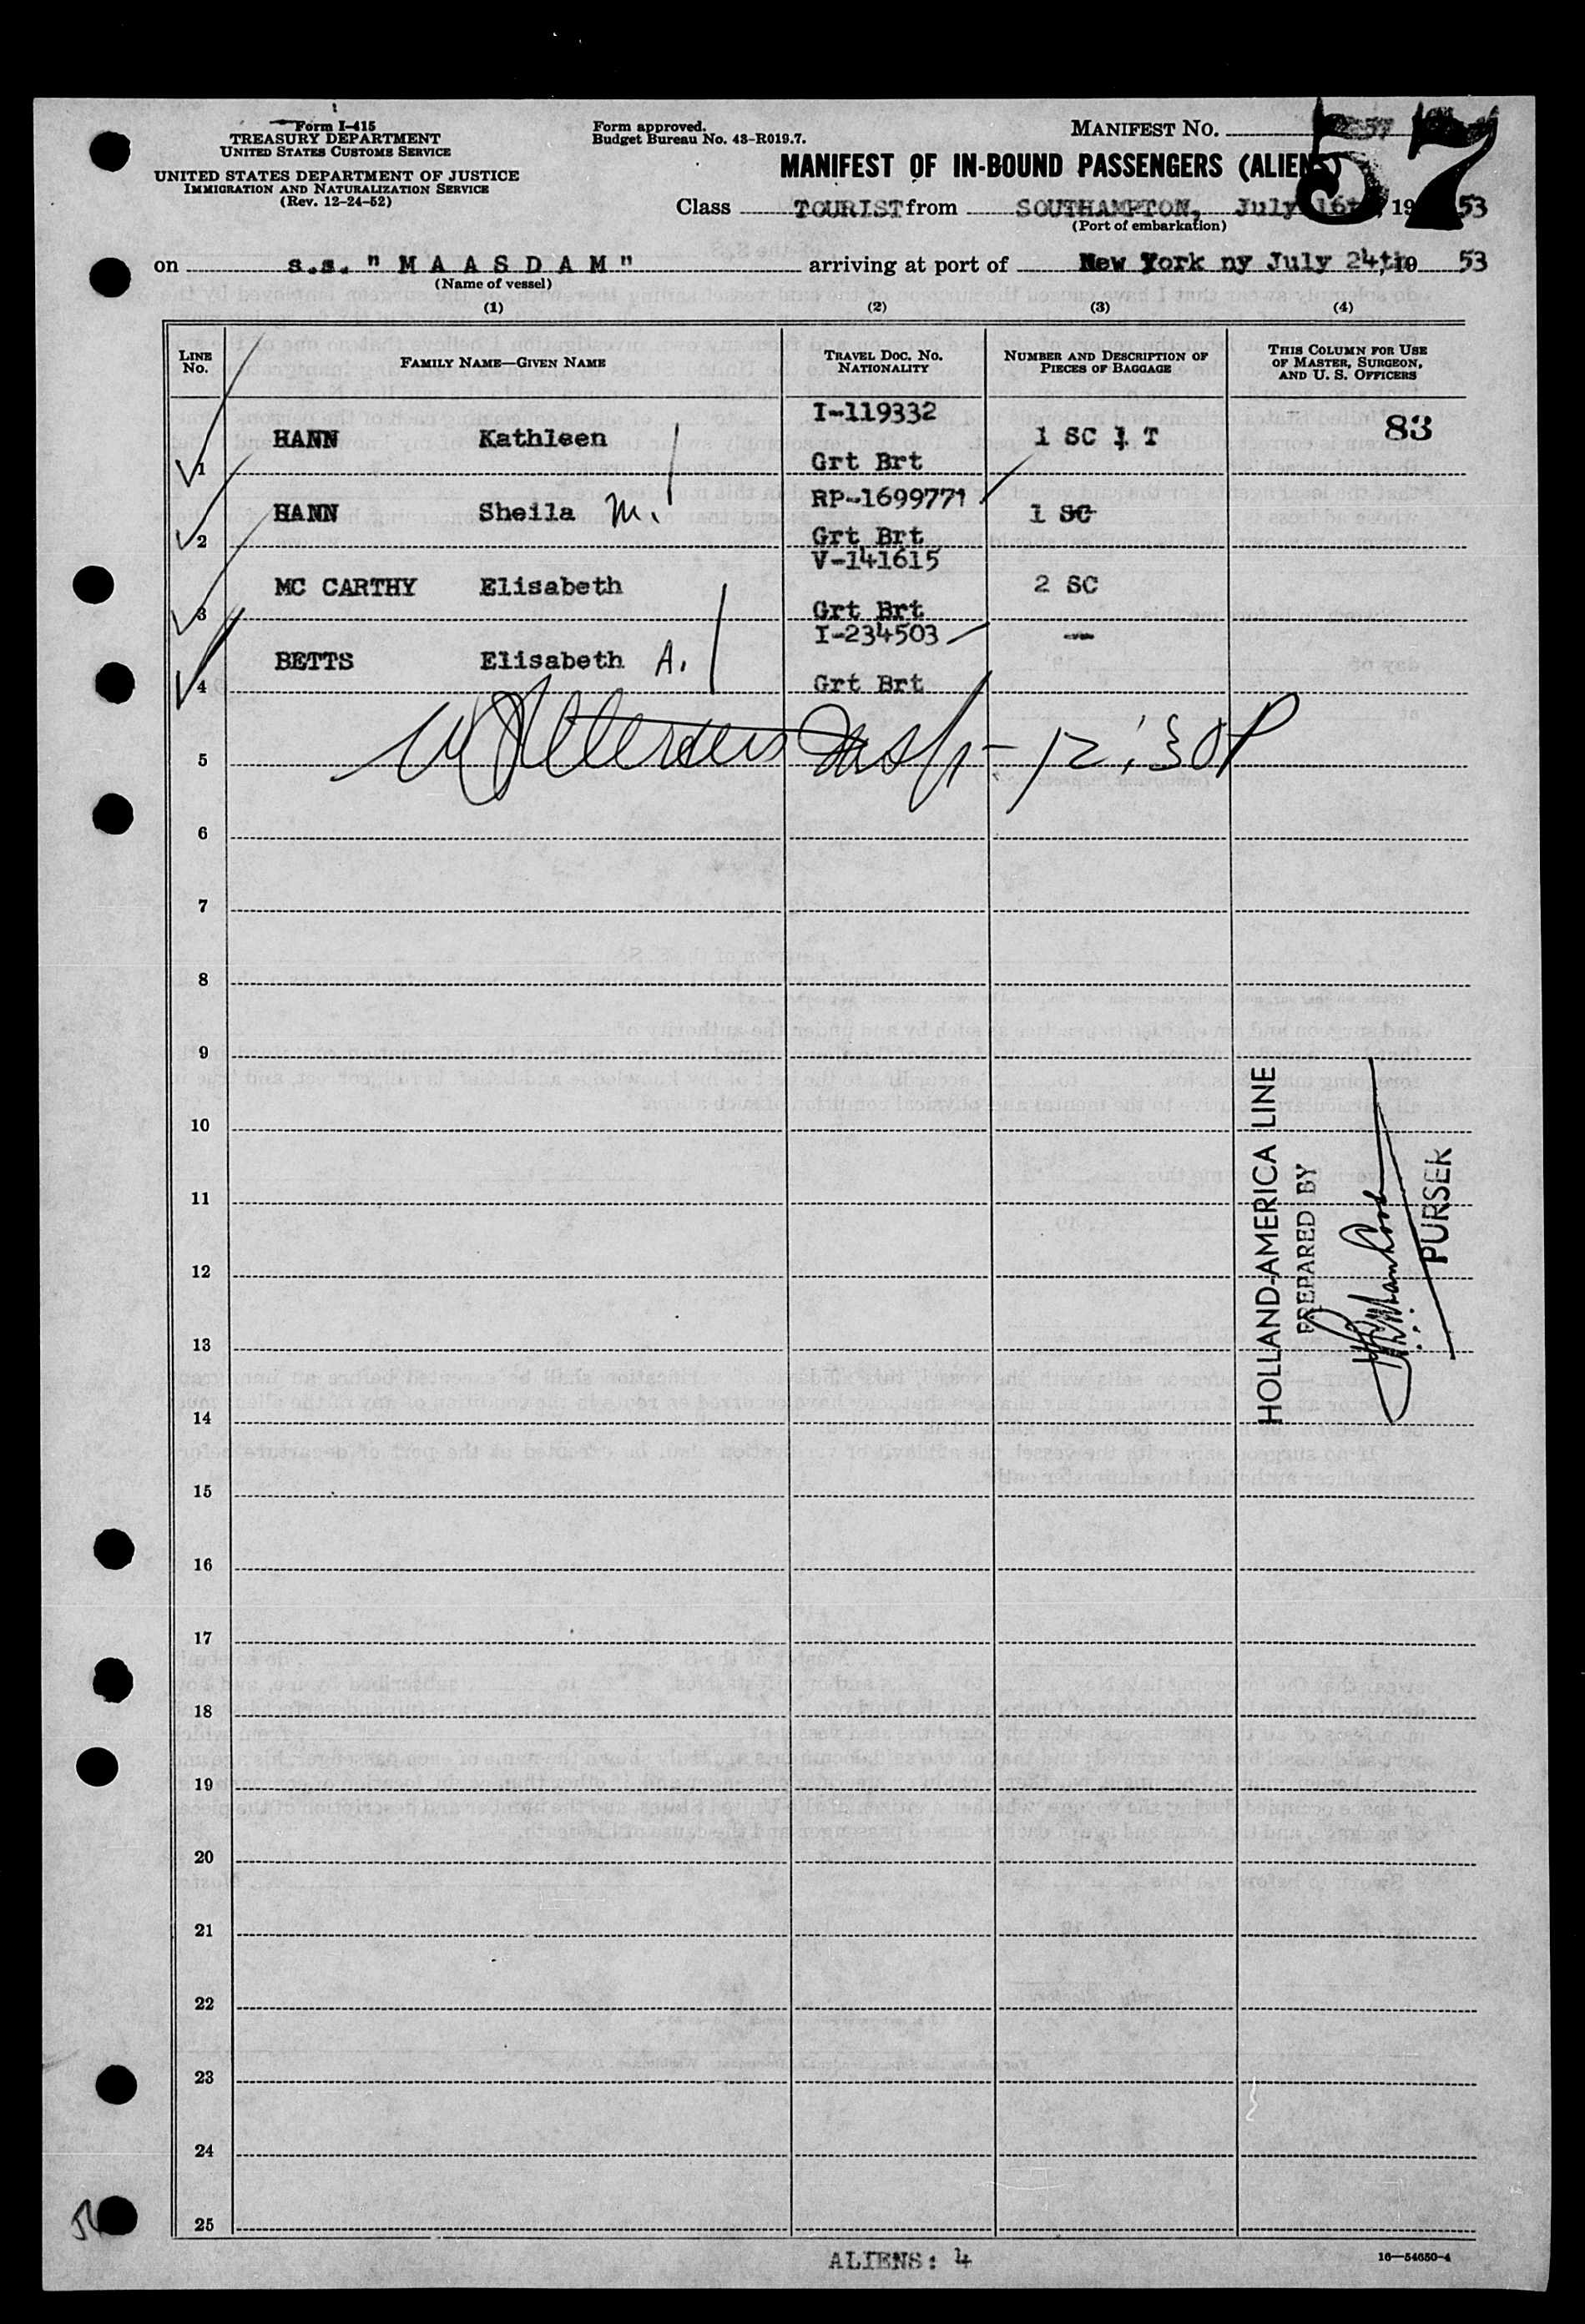 Form I-415
TREASURY DEPARTMENT
UNITED STATES CUSTOMS SERVICE
UNITED STATES DEPARTMENT OF JUSTICE
IMMIGRATION AND NATURALIZATION SERVICE
(Rev. 12-24-52)
Form approved.
Budget Bureau No. 43-R019.7.
MANIFEST NO. 57
MANIFEST OF IN-BOUND PASSENGERS (ALIENS)
Class TOURIST from SOUTHAMPTON, July 16th, 19 53
(Port of embarkation)
on s.s. "MAASDAM" arriving at port of New York ny July 24th, 19 53
(Name of vessel)
(1) (2) (3) (4)
LINE No. FAMILY NAME—GIVEN NAME TRAVEL DOC. NO. NATIONALITY NUMBER AND DESCRIPTION OF PIECES OF BAGGAGE THIS COLUMN FOR USE OF MASTER, SURGEON, AND U. S. OFFICERS
1 HANN Kathleen I-119332 Grt Brt 1 SC 1 T 83
2 HANN Sheila M. RP-1699771 Grt Brt 1 SC
3 MC CARTHY Elisabeth V-141615 Grt Brt 2 SC
4 BETTS Elisabeth A. I-234503 Grt Brt —
5 Insp - 12:30P
6
7
8
9
10
11
12
13
14
15
16
17
18
19
20
21
22
23
24
25
HOLLAND-AMERICA LINE
PREPARED BY
PURSER
ALIENS: 4
16—54650-4